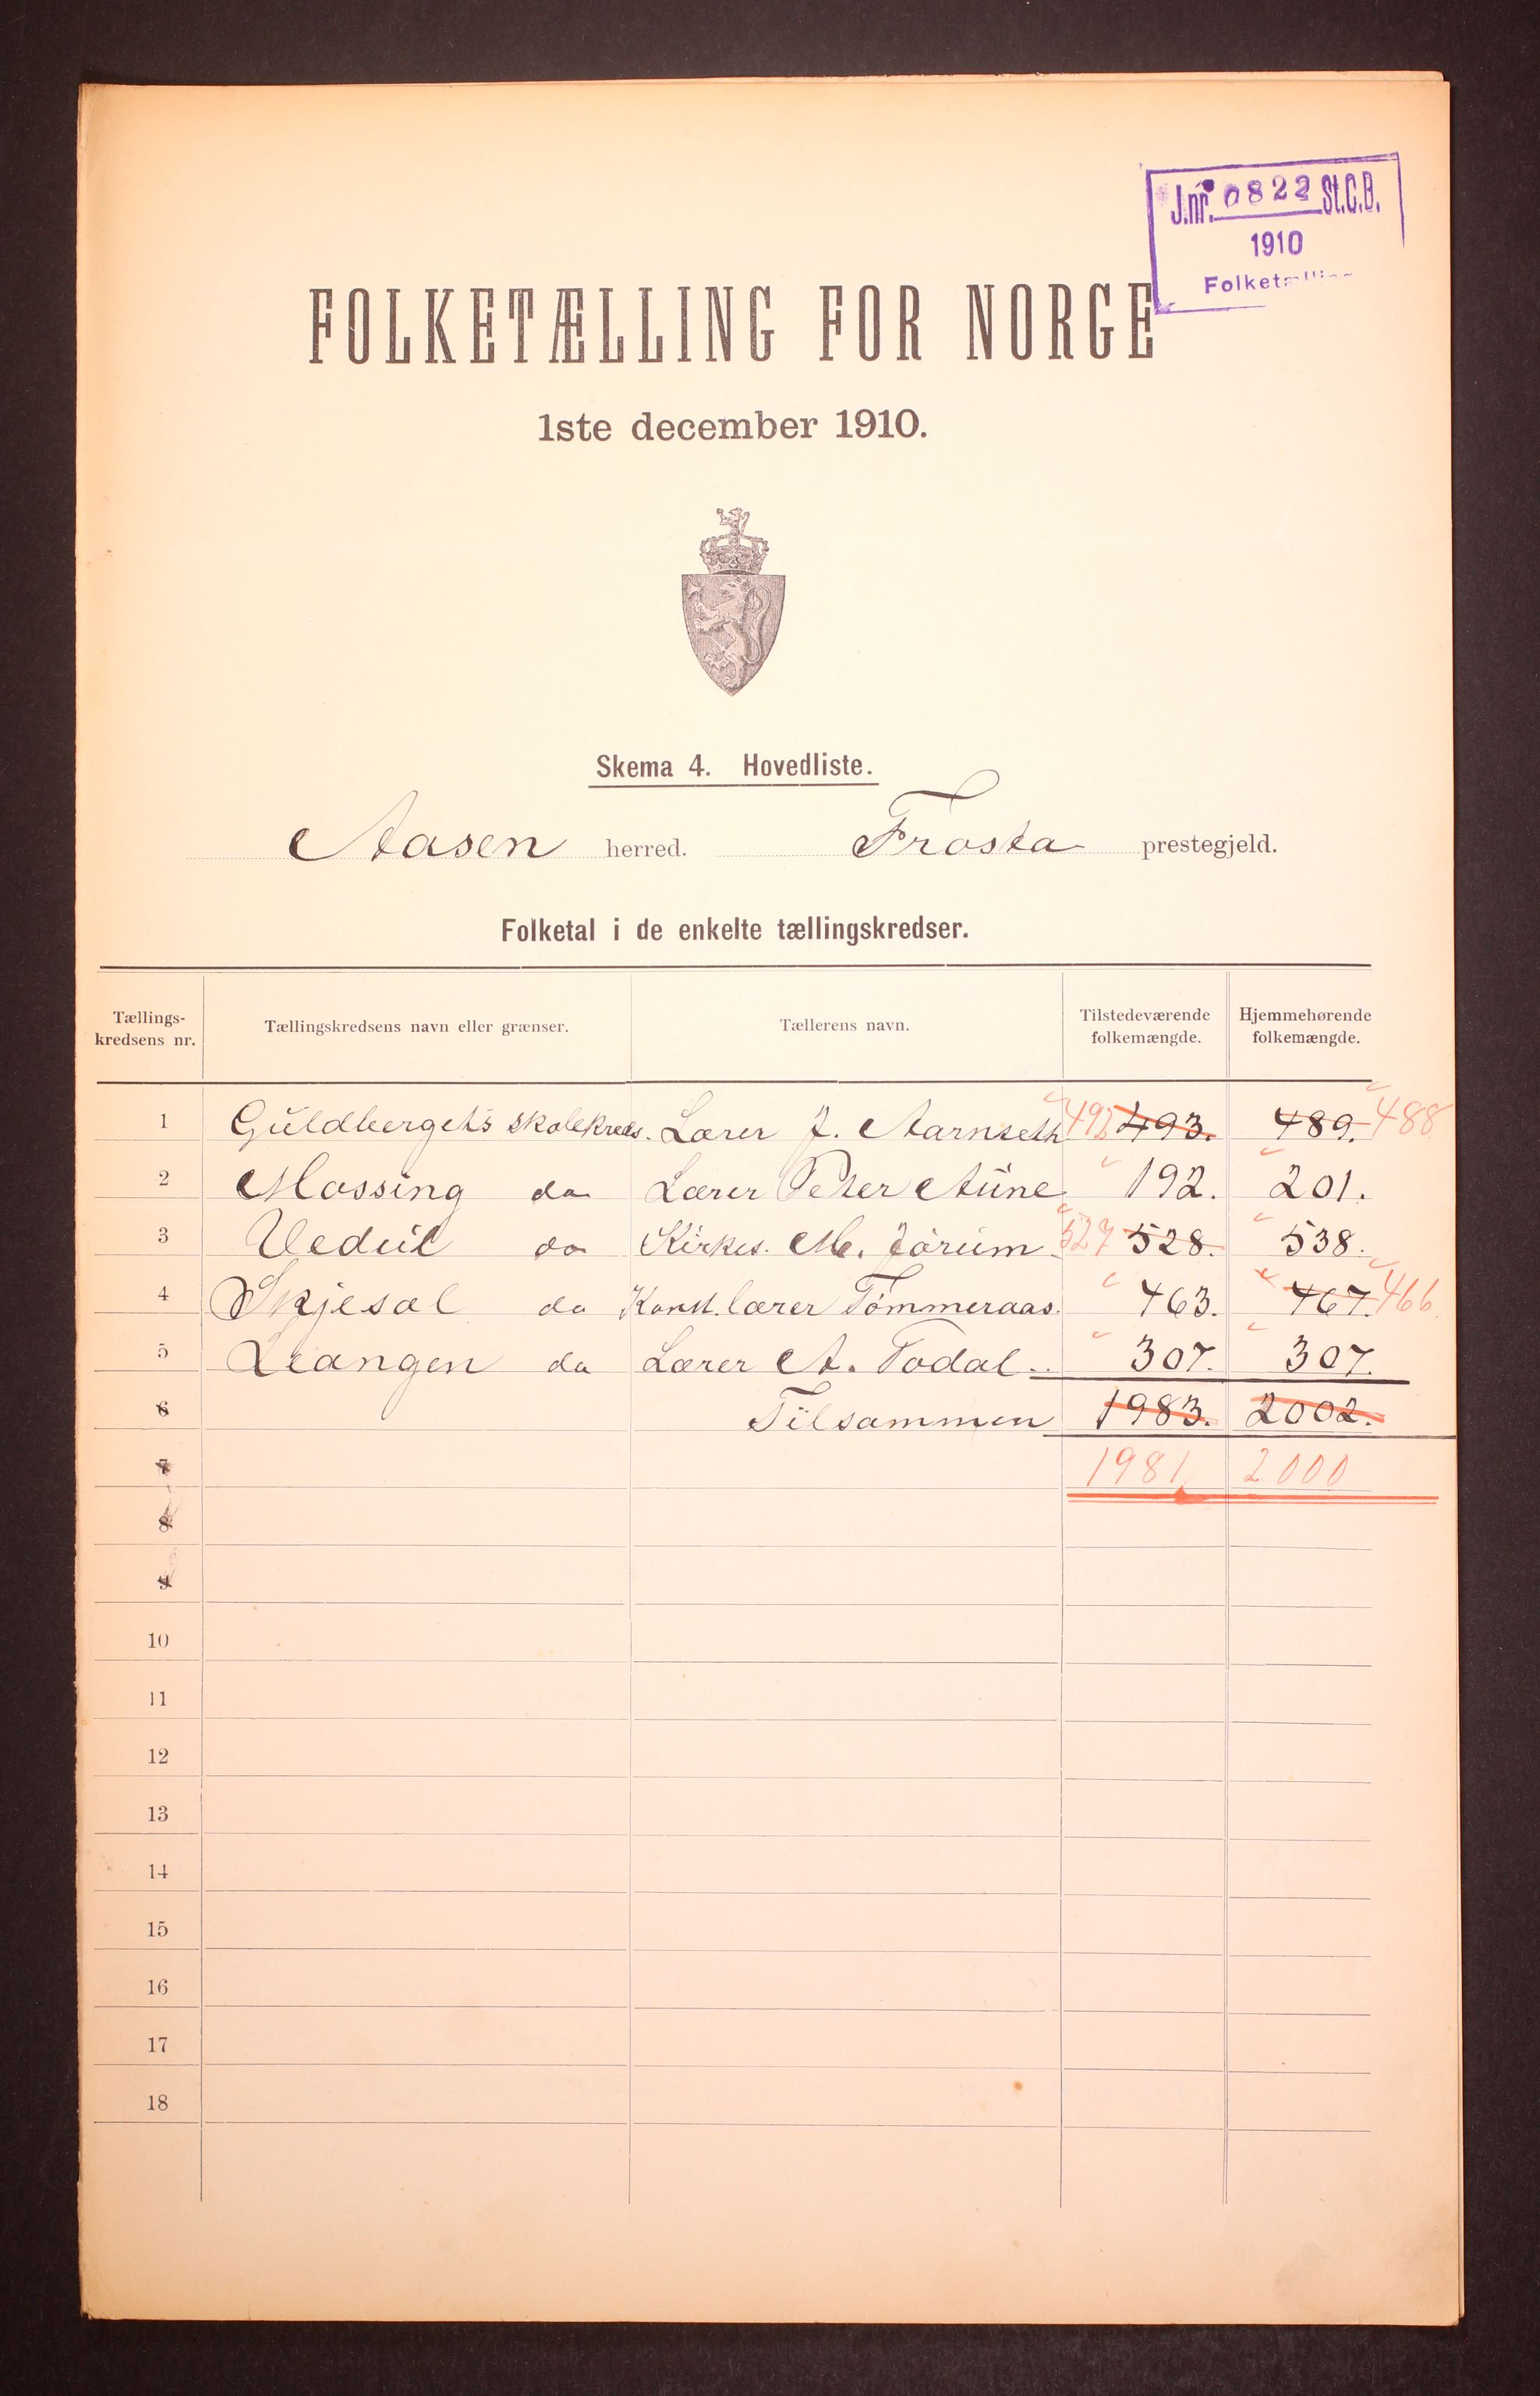 J.nr. 0822 St.C.B.
1910
Folketælling
FOLKETÆLLING FOR NORGE
1ste december 1910.
Skema 4. Hovedliste.
Aasen herred. Frosta prestegjeld.
Folketal i de enkelte tællingskredser.
Tællings-kredsens nr. Tællingskredsens navn eller grænser. Tællerens navn. Tilstedeværende folkemængde. Hjemmehørende folkemængde.
1 Guldbergets skolekreds. Lærer J. Aarnseth 492 493. 489. 488
2 Mossing do Lærer Peter Aune 192. 201.
3 Vedul do Kirkes. M. Jørum 527 528. 538.
4 Skjesol do Konst. lærer Tømmeraas. 463. 467. 466
5 Leangen do Lærer A. Todal 307. 307.
6 Tilsammen 1983. 2002.
7 1981 2000
8
9
10
11
12
13
14
15
16
17
18